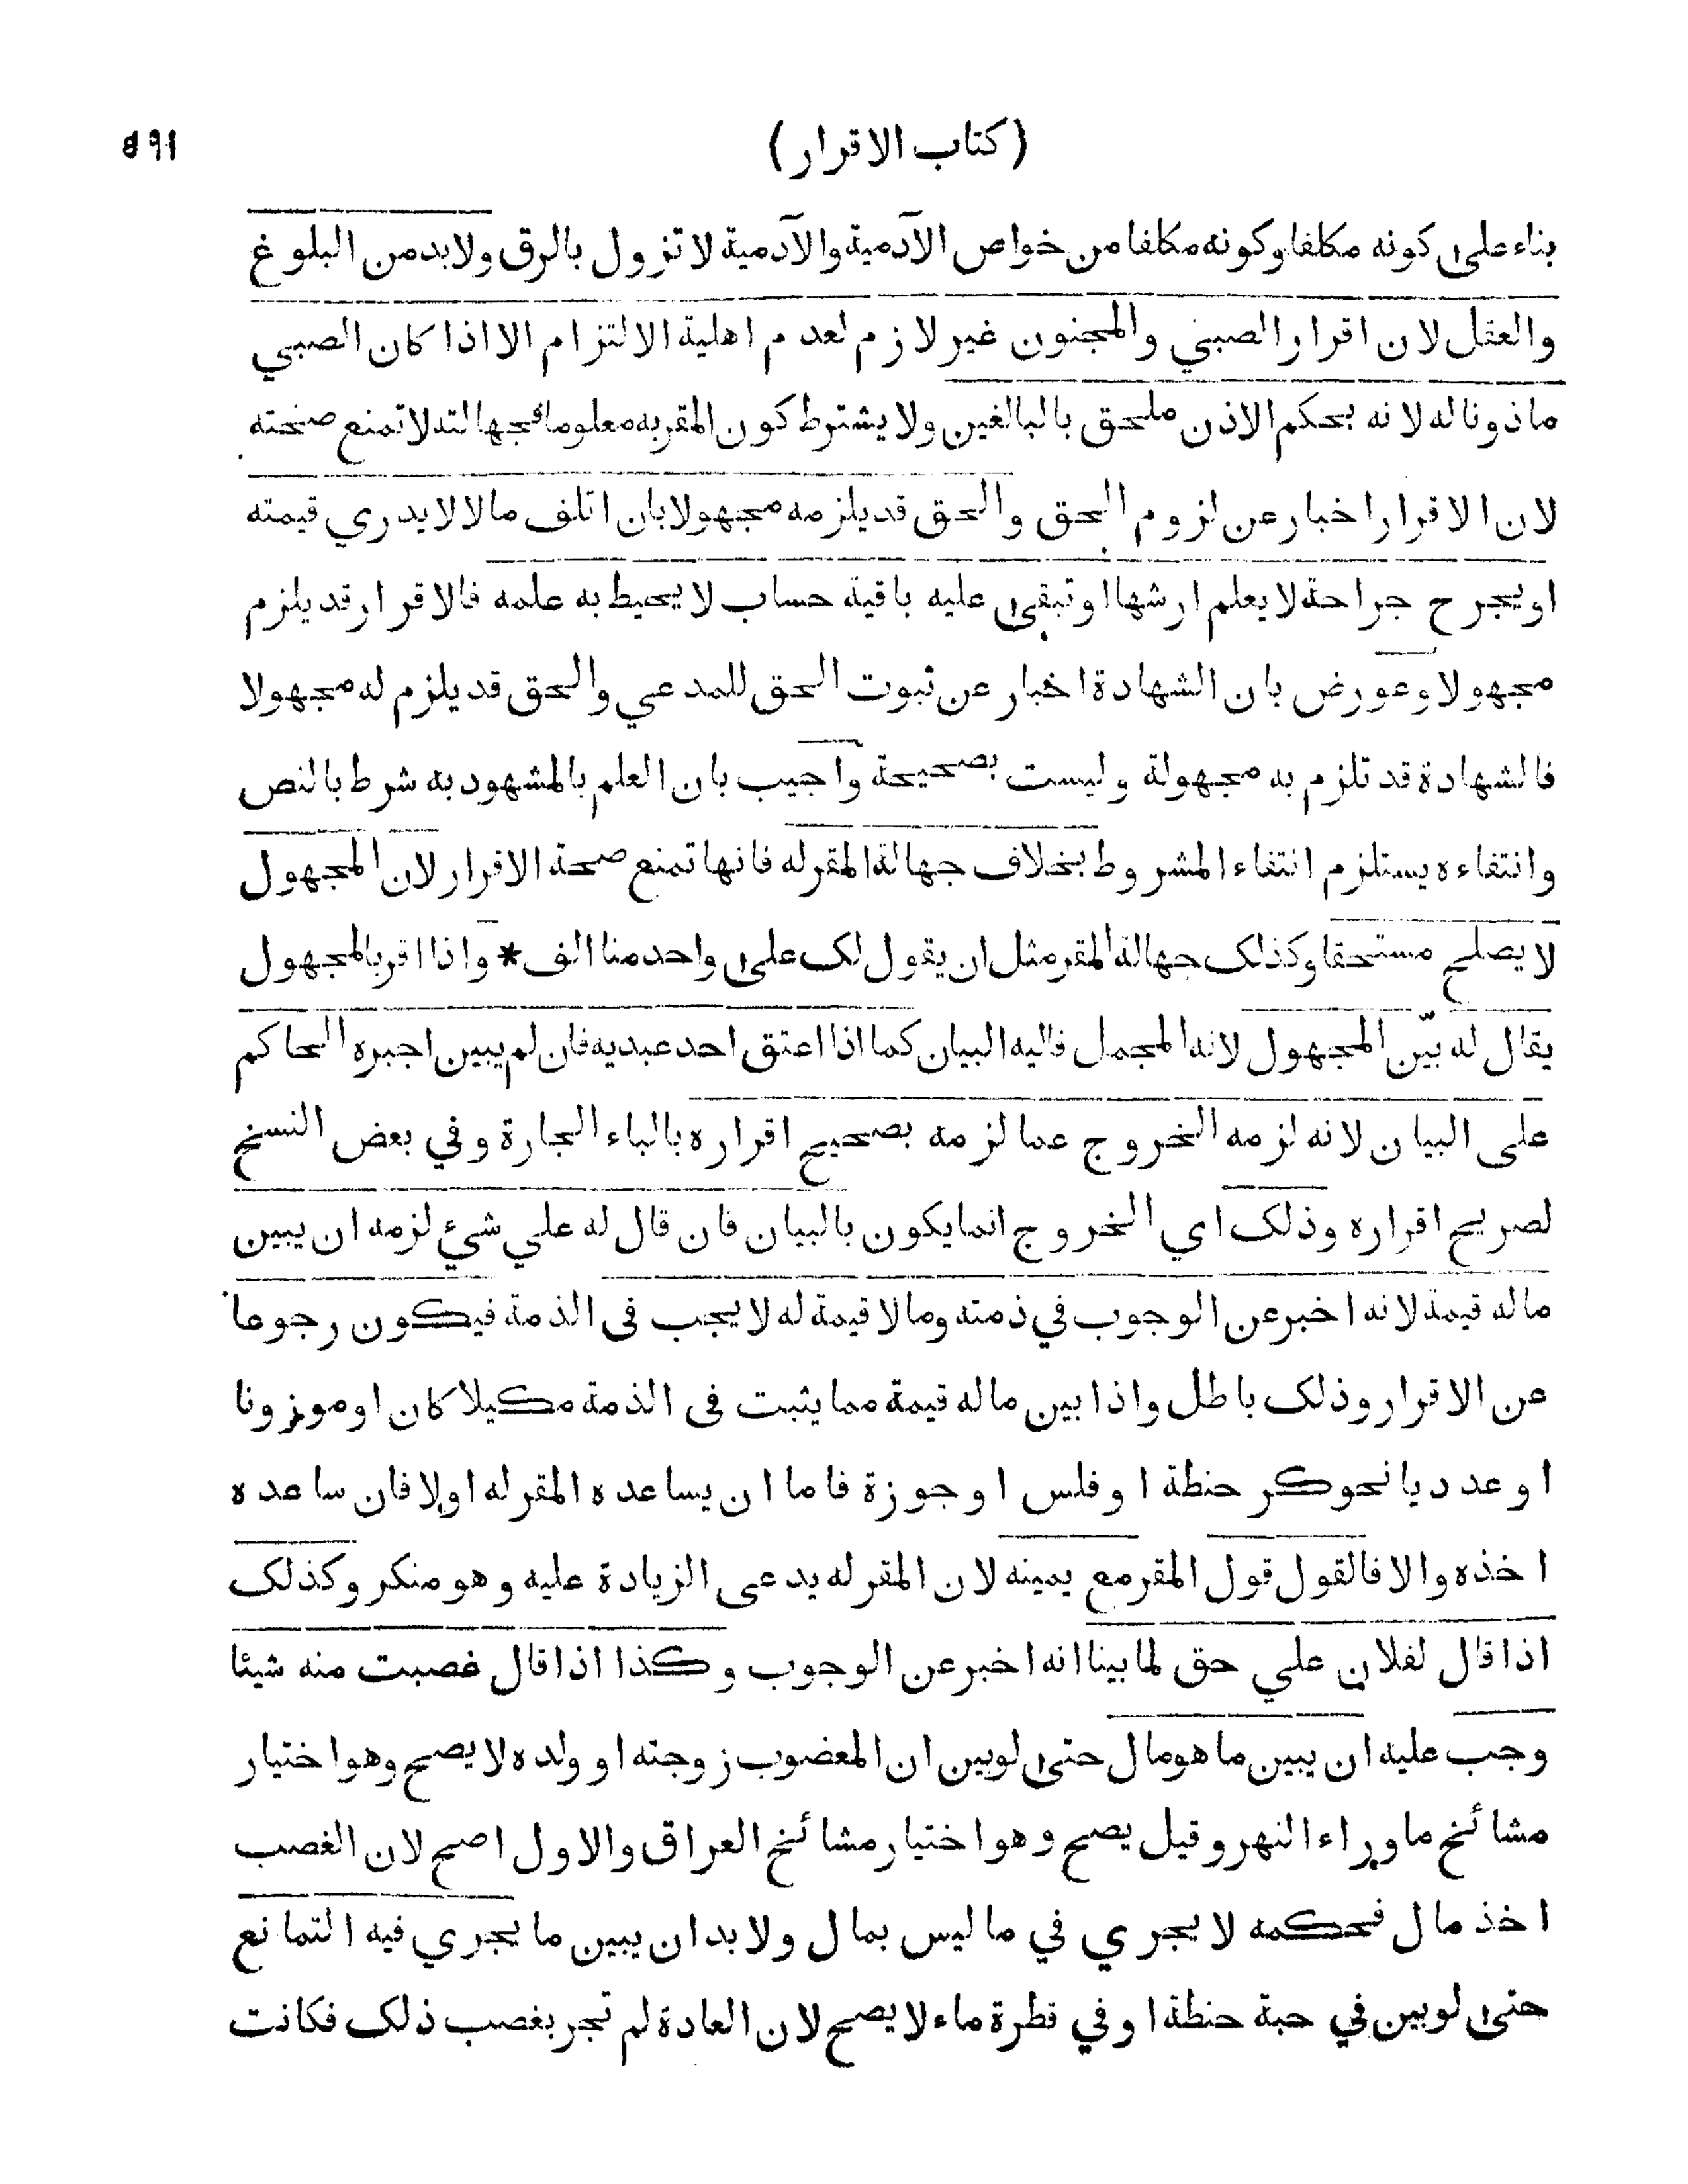 (كتاب الاقرار)
بناء على كونه مكلفا وكونه مكلفا من خواص الآدمية والآدمية لا تزول بالرق ولابد من البلوغ
والعقل لان اقرار الصبي والمجنون غير لازم لعدم اهلية الالتزام الا اذا كان الصبي
ماذونا له لانه بحكم الاذن ملحق بالبالغين ولا يشترط كون المقربه معلوما فجهالته لا تمنع صحته
لان الاقرار اخبار عن لزوم الحق والحق قد يلزمه مجهولا بان اتلف مالا لا يدري قيمته
او يجرح جراحة لا يعلم ارشها او تبقى عليه باقية حساب لا يحيط به علمه فالاقرار قد يلزم
مجهولا وعورض بان الشهادة اخبار عن ثبوت الحق للمدعي والحق قد يلزم له مجهولا
فالشهادة قد تلزم به مجهولة وليست بصحيحة واجيب بان العلم بالمشهود به شرط بالنص
وانتفاءه يستلزم انتفاء المشروط بخلاف جهالة المقرله فانها تمنع صحة الاقرار لان المجهول
لا يصلح مستحقا وكذلك جهالة المقر مثل ان يقول لك على واحد منا الف * واذا اقر بالمجهول
يقال له بيّن المجهول لانه المجمل فاليه البيان كما اذا اعتق احد عبديه فان لم يبين اجبره الحاكم
على البيان لانه لزمه الخروج عما لزمه بصحيح اقراره بالباء الجارة وفي بعض النسخ
لصريح اقراره وذلك اي الخروج انما يكون بالبيان فان قال له علي شيء لزمه ان يبين
ماله قيمة لانه اخبر عن الوجوب في ذمته وما لا قيمة له لا يجب فى الذمة فيكون رجوعا
عن الاقرار وذلك باطل واذا بين ماله قيمة مما يثبت فى الذمة مكيلا كان او موزونا
او عدديا نحو كر حنطة او فلس او جوزة فاما ان يساعده المقر له اولا فان ساعده
اخذه والا فالقول قول المقر مع يمينه لان المقر له يدعى الزيادة عليه وهو منكر وكذلك
اذا قال لفلان علي حق لما بينا انه اخبر عن الوجوب وكذا اذا قال غصبت منه شيئا
وجب عليه ان يبين ما هو مال حتى لو بين ان المغضوب زوجته او ولده لا يصح وهو اختيار
مشائخ ماوراء النهر وقيل يصح وهو اختيار مشائخ العراق والاول اصح لان الغصب
اخذ مال فحكمه لا يجري في ما ليس بمال ولا بد ان يبين ما يجري فيه التمانع
حتى لو بين في حبة حنطة او في قطرة ماء لا يصح لان العادة لم تجر بغصب ذلك فكانت